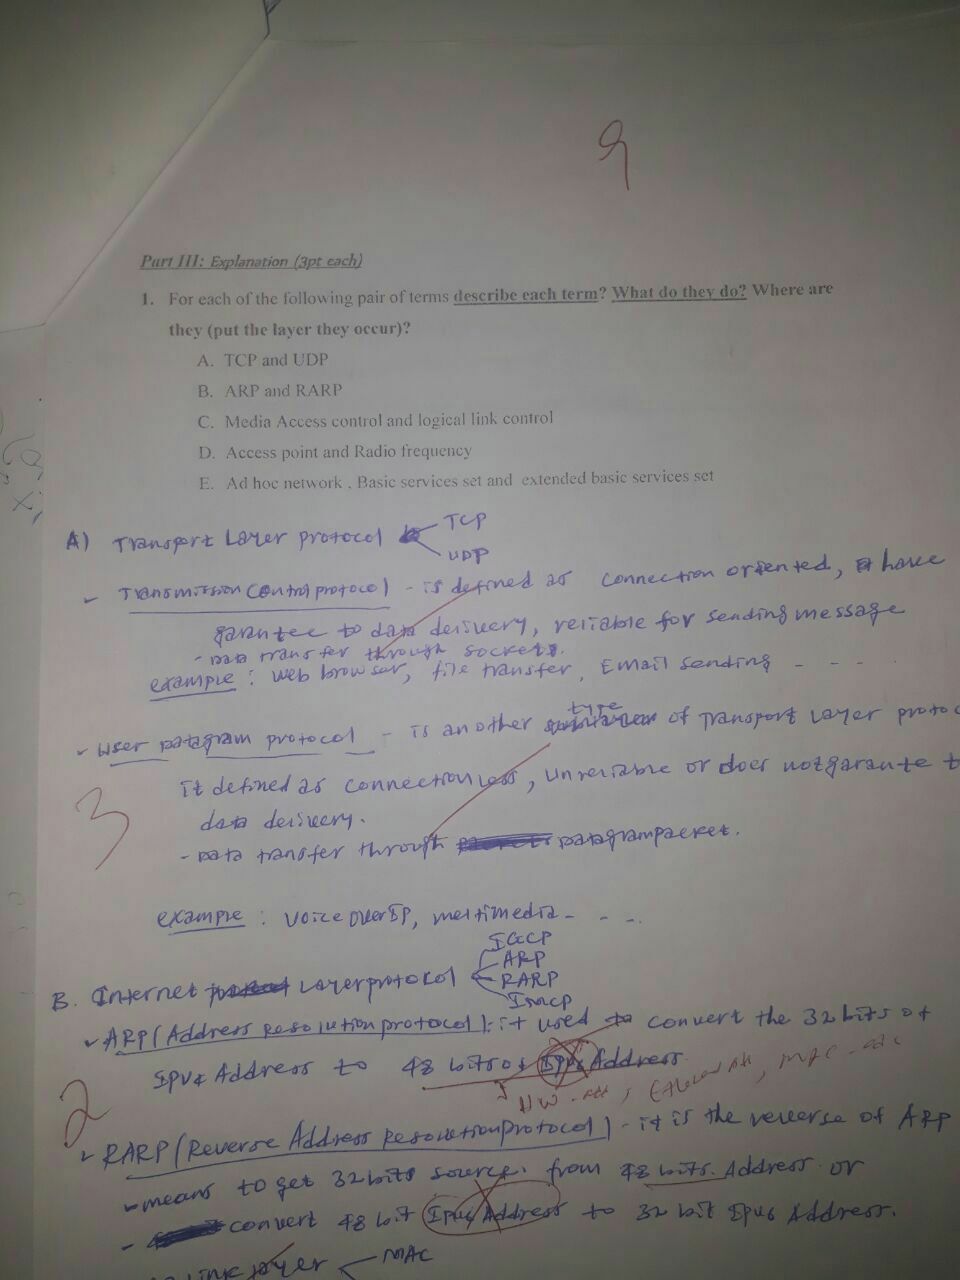 9
Part III: Explanation (3pt each)
1. For each of the following pair of terms describe each term? What do they do? Where are
they (put the layer they occur)?
A. TCP and UDP
B. ARP and RARP
C. Media Access control and logical link control
D. Access point and Radio frequency
E. Ad hoc network , Basic services set and extended basic services set
A) Transport Layer protocol TCP
UDP
Transmission Control protocol - is defined as connection oriented, have
garantee to data delivery, reliable for sending message
- Data transfer through sockets.
example : web browser, file transfer, Email sending - - -
User Datagram protocol - is another type of Transport Layer protoc
it defined as connectionless, unreliable or does not garante t
data delivery.
3
- Data transfer through Datagrampacket.
example : voice over IP, meltimedia - - -.
IGCP
B. Internet Layer protokol ARP
RARP
IMCP
ARP (Address Resolution protocol): it used to convert the 32 bits of
IPv4 Address to 48 bits of IPv6 Address
HW-
2
RARP (Reverse Address Resolution Protocol) - it is the reverse of ARP
- means to get 32 bits source. from 48 bits Address or
- convert 48 bit IPv6 Address to 32 bit IPv6 Address.
Link layer MAC